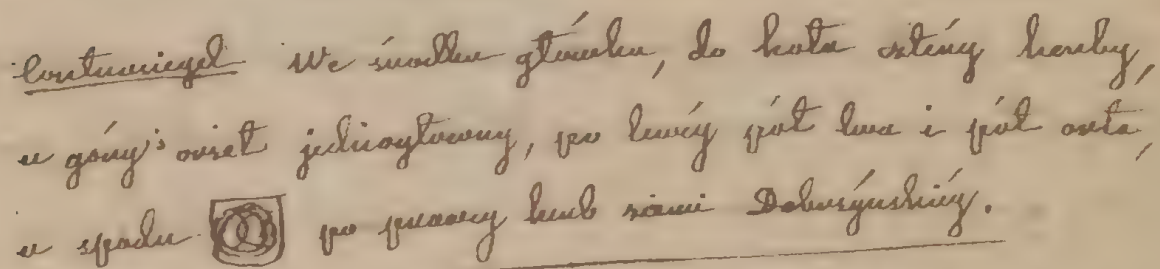 Contrasiegel We środku główka, do koła cztéry herby,
u góry orzeł jednogłowny, po lewéy pół lwa i pół orła,
u spodu po prawey herb ziemi Dobrzyńskiéy.